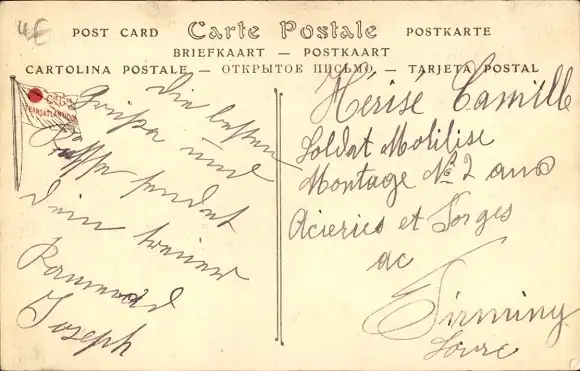 4 €
POST CARD Carte Postale POSTKARTE
BRIEFKAART — POSTKAART
CARTOLINA POSTALE — ОТКРЫТОЕ ПИСЬМО — TARJETA POSTAL
Cie Gle
TRANSATLANTIQUE
die besten
Grüße und
Küsse sendet
dein treuer
Raimund
Joseph
Hérisé Camille
Soldat Molilise
Montage No 2 aux
Acieries et Forges
de
Firminy
Loire